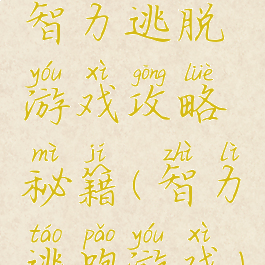 智力逃脱
yóu xì gōng lüè
游戏攻略
mì jí zhì lì
秘籍(智力
táo pǎo yóu xì
逃跑游戏)